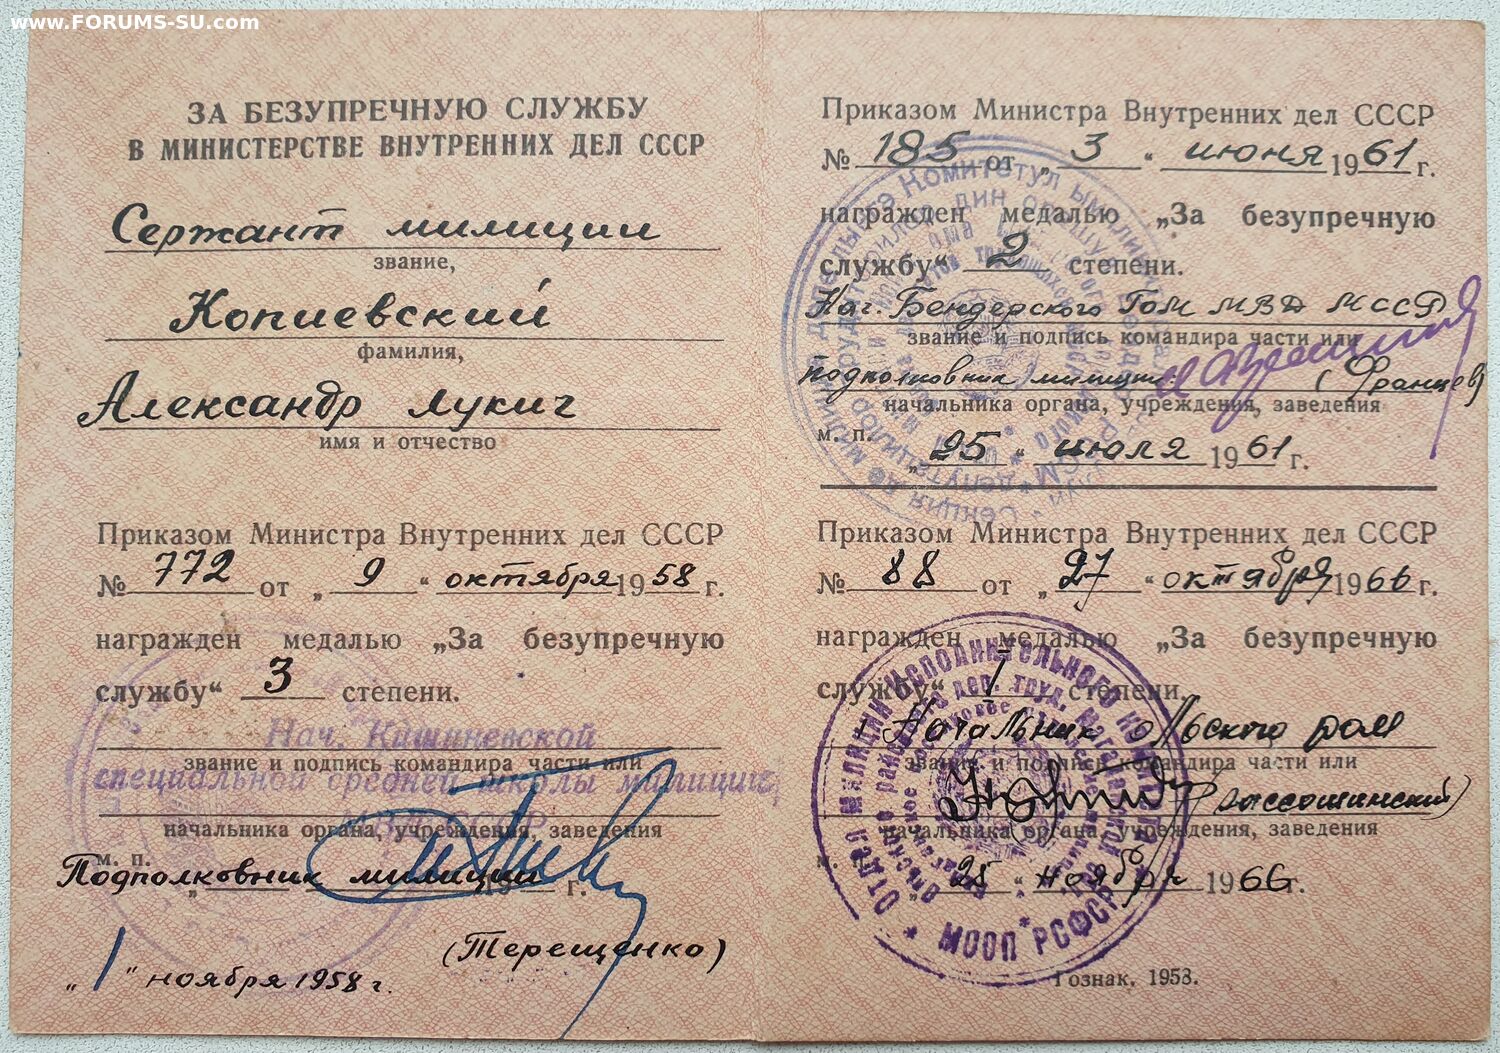 www.FORUMS-SU.com
ЗА БЕЗУПРЕЧНУЮ СЛУЖБУ
В МИНИСТЕРСТВЕ ВНУТРЕННИХ ДЕЛ СССР
Сержант милиции
звание,
Копиевский
фамилия,
Александр Лукич
имя и отчество
Приказом Министра Внутренних дел СССР
№ 772 от „ 9 “ октября 1958 г.
награжден медалью „За безупречную
службу“ 3 степени.
Нач. Кишиневской
звание и подпись командира части или
специальной средней школы милиции
начальника органа, учреждения, заведения
м. п.
Подполковник милиции г.
(Терещенко)
„1“ ноября 1958 г.
Приказом Министра Внутренних дел СССР
№ 185 от „ 3 “ июня 1961 г.
награжден медалью „За безупречную
службу“ 2 степени.
Нач. Бендерского ГОМ МВД МССР
звание и подпись командира части или
подполковник милиции (Францев)
начальника органа, учреждения, заведения
м. п.
„ 25 “ июля 1961 г.
Приказом Министра Внутренних дел СССР
№ 88 от „ 27 “ октября 1966 г.
награжден медалью „За безупречную
службу“ I степени.
Начальник Ольского РОМ
звание и подпись командира части или
(Рассошинский)
начальника органа, учреждения, заведения
м. п.
„ 25 “ ноября 1966 г.
ОТДЕЛ МИЛИЦИИ ИСПОЛНИТЕЛЬНОГО КОМИТЕТА
* МООП РСФСР *
Гознак. 1958.